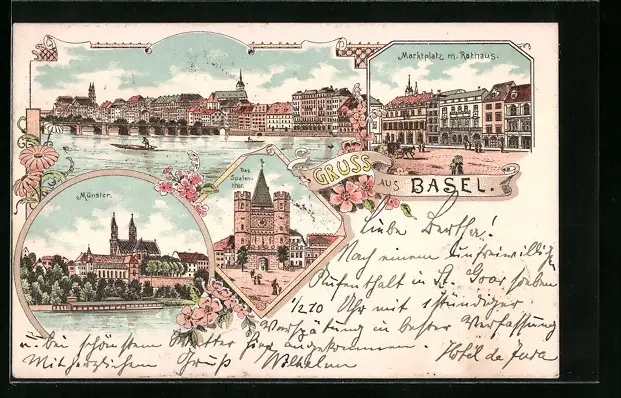 Marktplatz m. Rathaus.
Münster.
Das
Spalen-
thor.
GRUSS
AUS BASEL.
Liebe Bertha!
Nach einem unfreiwillig
Aufenthalt in St. Goar soeben
1/2 10 Uhr mit 1 stündiger
Verspätung in bester Verfassung
u. bei schönstem Wetter hier angekommen.
Mit herzlichem Gruß Wilhelm
Hôtel de Jura